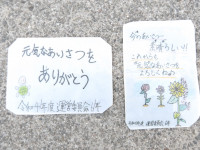 元気なあいさつを
ありがとう
令和4年度 運営委員会6年
素晴らしい!!
これからも
元気なあいさつを
よろしくね